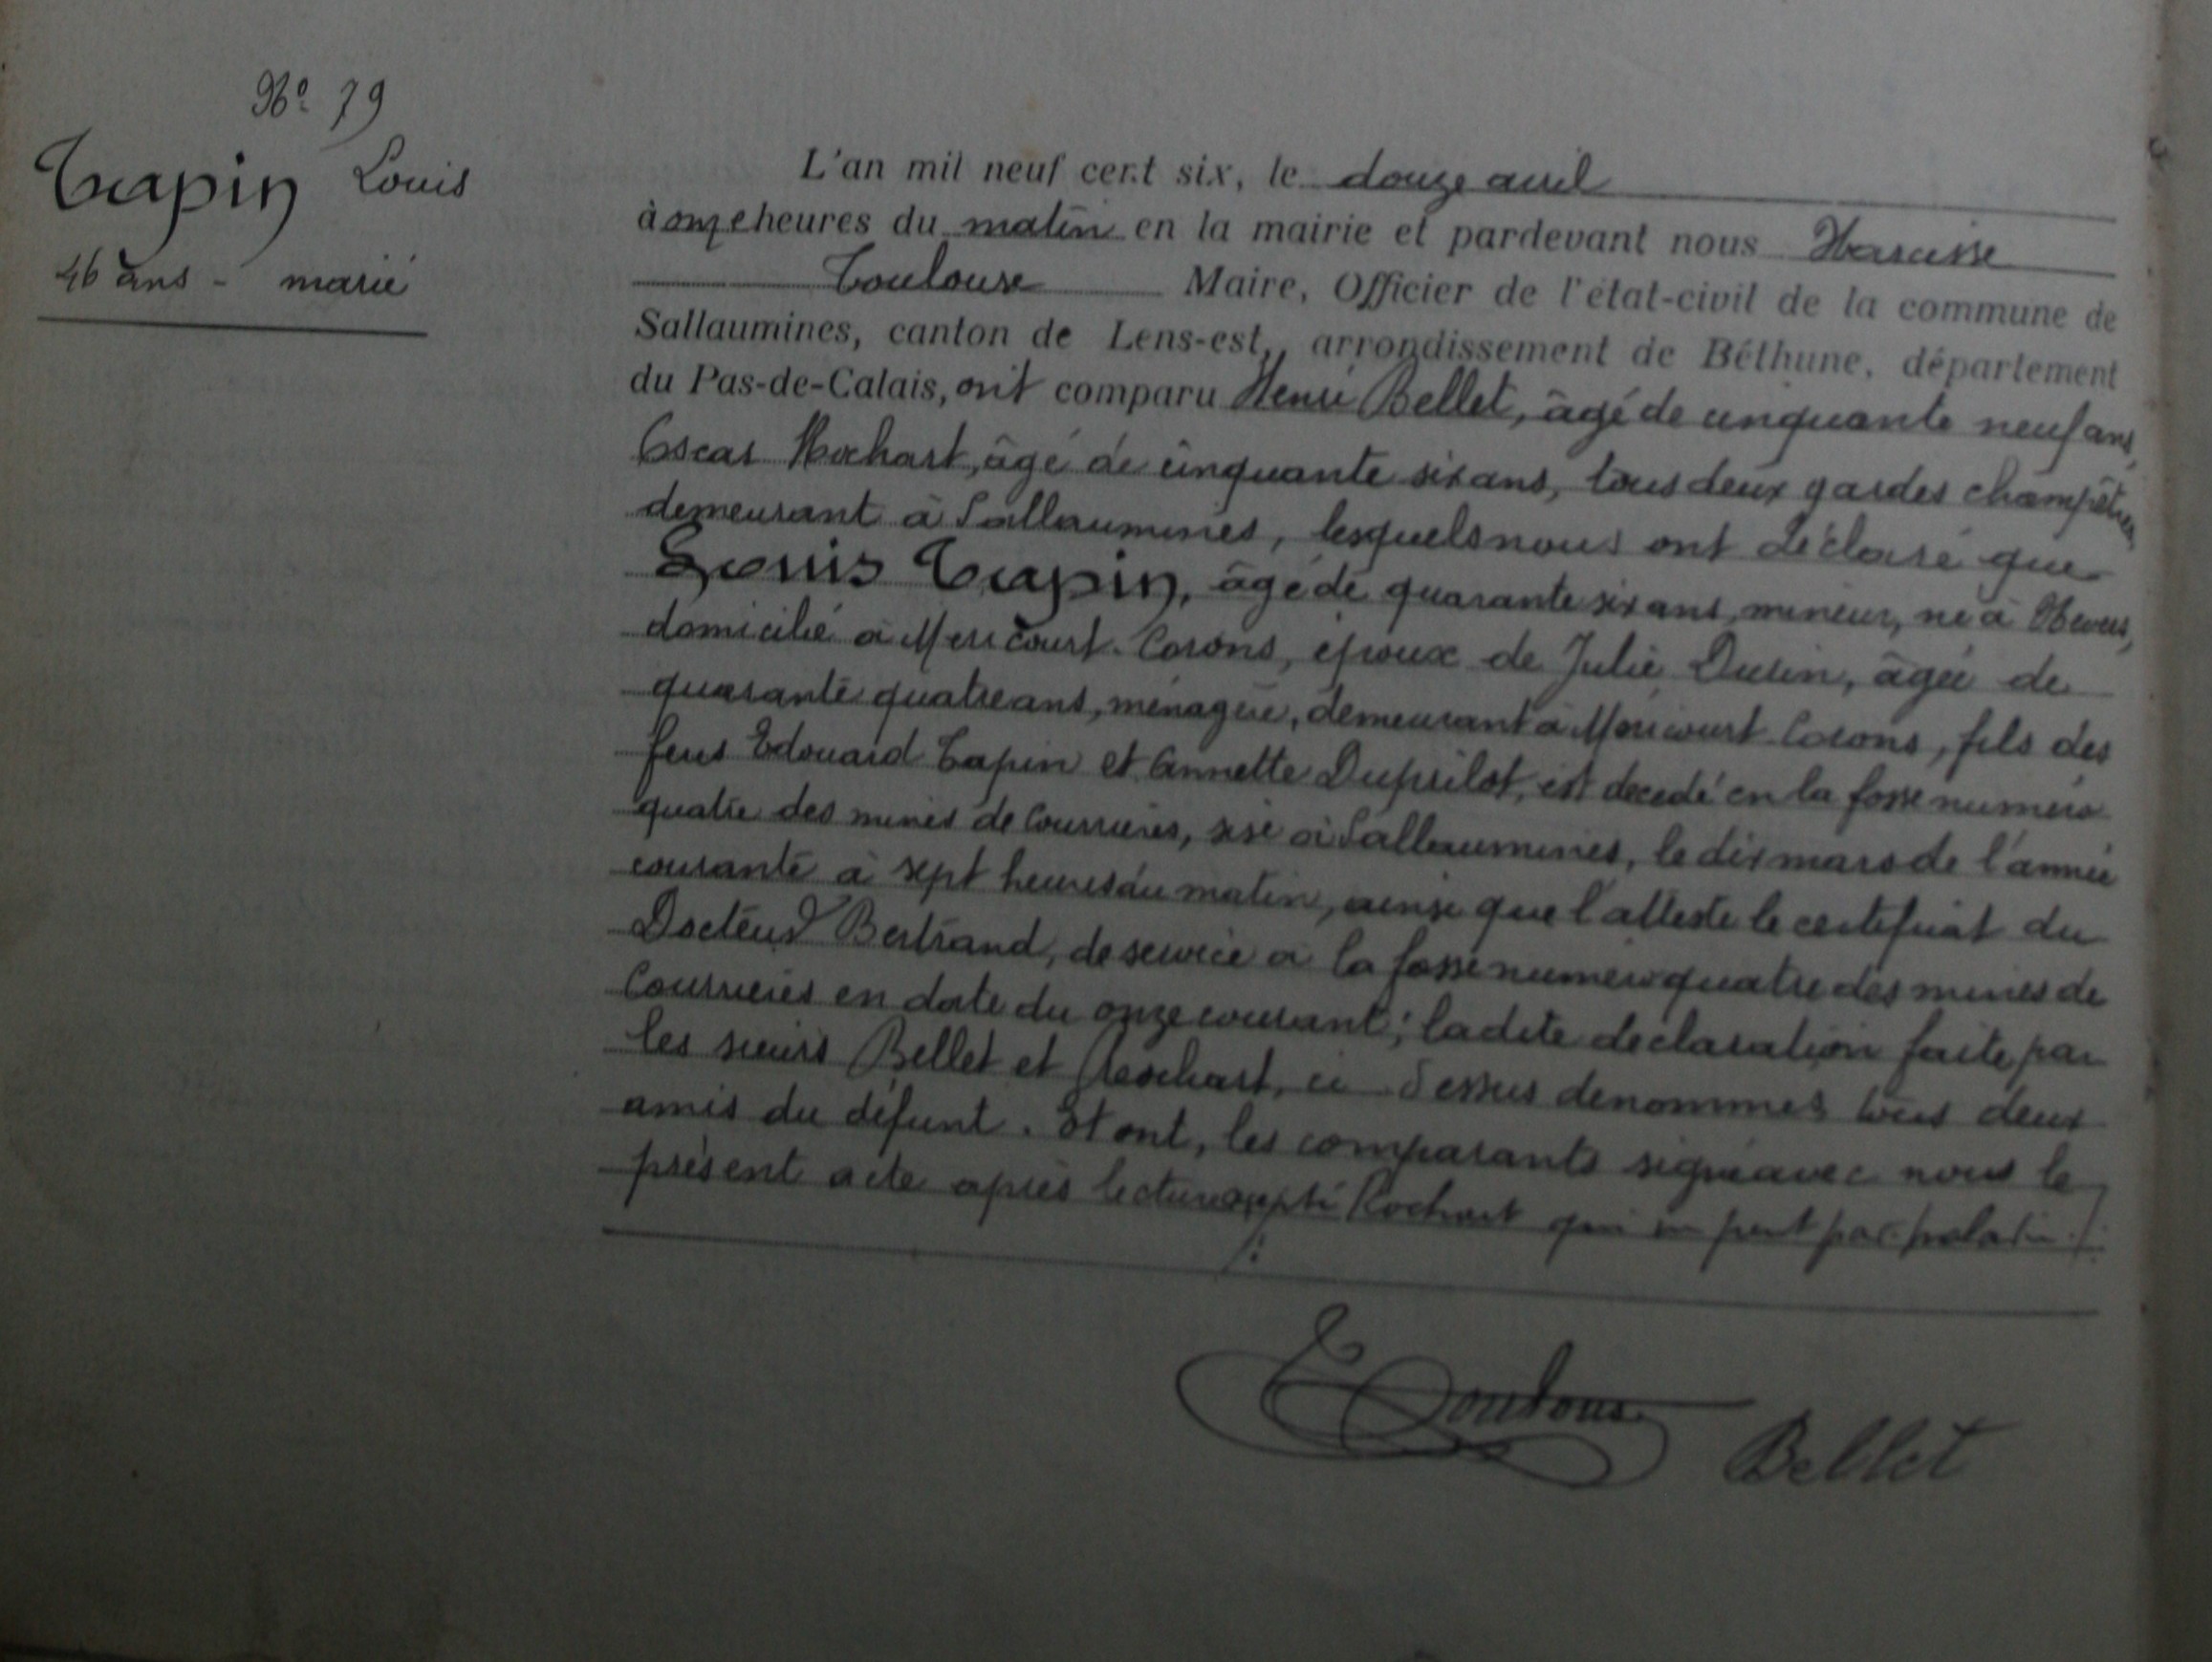 No 79
Trapin Louis
46 ans - marié
L'an mil neuf cent six, le douze avril
à onze heures du matin en la mairie et pardevant nous Narcisse
Toulouse Maire, Officier de l'état-civil de la commune de
Sallaumines, canton de Lens-est, arrondissement de Béthune, département
du Pas-de-Calais, ont comparu Henri Bellet, âgé de cinquante neuf ans,
Oscar Rochart, âgé de cinquante six ans, tous deux gardes champêtres
demeurant à Sallaumines, lesquels nous ont déclaré que
Louis Trapin, âgé de quarante six ans, mineur, né à Nevers,
domicilié à Mericourt-Corons, époux de Julie Durin, âgée de
quarante quatre ans, ménagère, demeurant à Mericourt Corons, fils des
feus Edouard Tapin et Annette est décédé en la fosse numéro
quatre des mines de Courrières, sise à Sallaumines, le dix mars de l'année
courante à sept heures du matin, ainsi que l'atteste le certificat du
Docteur Bertrand, de service à la fosse numéro quatre des mines de
Courrières en date du onze courant; ladite déclaration faite par
les sieurs Bellet et Rochart, ci-dessus dénommés tous deux
amis du défunt. Et ont, les comparants signé avec nous le
présent acte après lecture excepté Rochart qui ne peut pas
Toulouse
Bellet